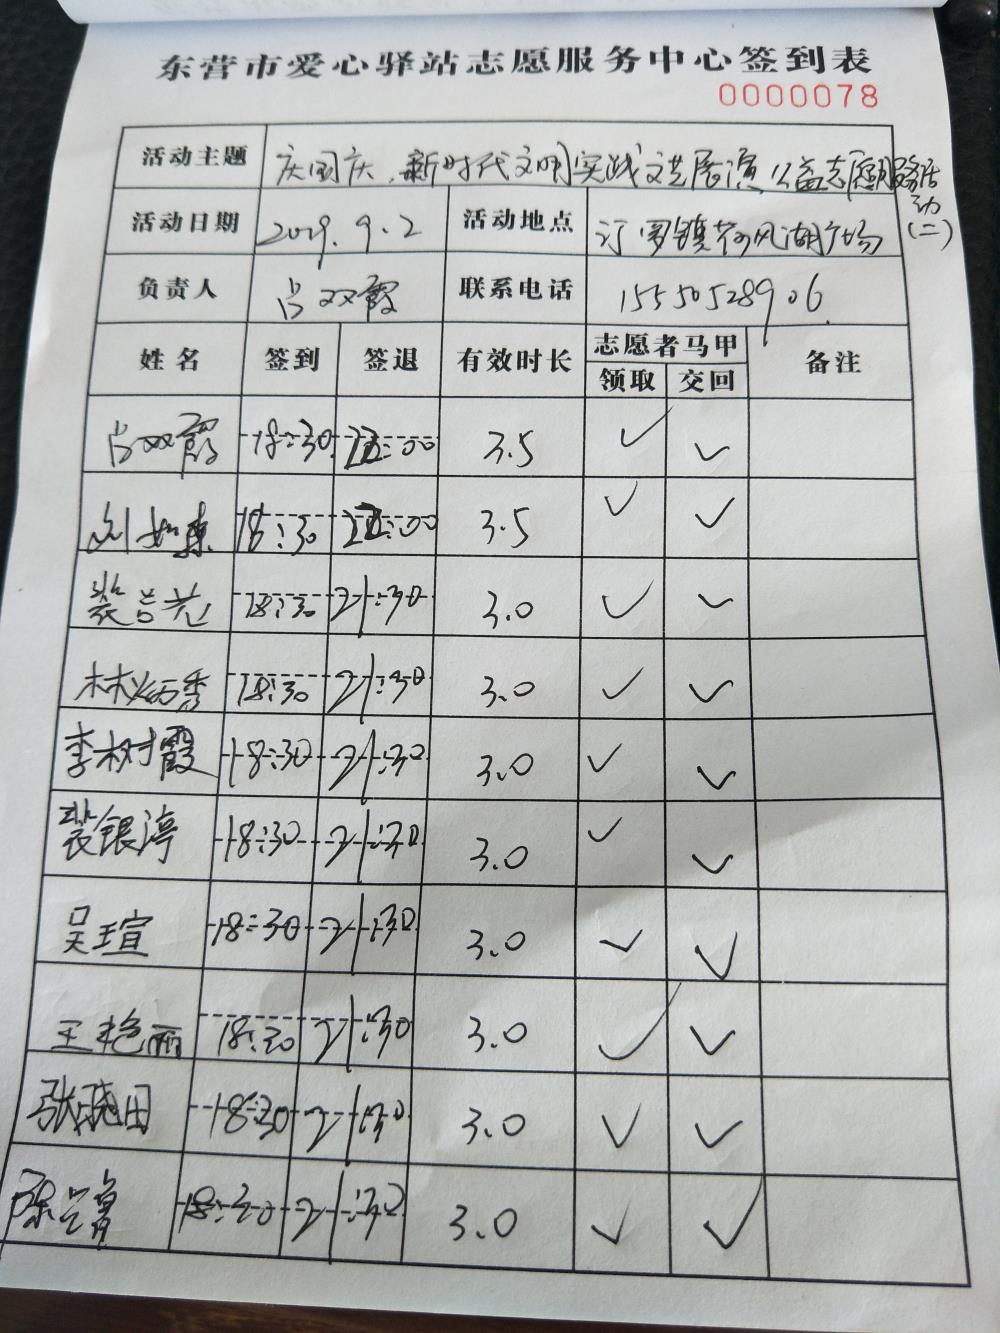 东营市爱心驿站志愿服务中心签到表
0000078
活动主题 庆国庆、新时代文明实践文艺展演公益志愿服务活动(二)
活动日期 2019.9.2 活动地点 汀罗镇荷风湖广场
负责人 吕双霞 联系电话 15550528906
姓名 签到 签退 有效时长 志愿者马甲 备注
领取 交回
吕双霞 18:30 22:00 3.5 ✓ ✓
刘如東 18:30 22:00 3.5 ✓ ✓
裴吉芝 18:30 21:30 3.0 ✓ ✓
林炳秀 18:30 21:30 3.0 ✓ ✓
李树霞 18:30 21:30 3.0 ✓ ✓
裴银渟 18:30 21:30 3.0 ✓ ✓
吴瑄 18:30 21:30 3.0 ✓ ✓
王艳丽 18:30 21:30 3.0 ✓ ✓
张晓田 18:30 21:30 3.0 ✓ ✓
陈 18:30 21:30 3.0 ✓ ✓